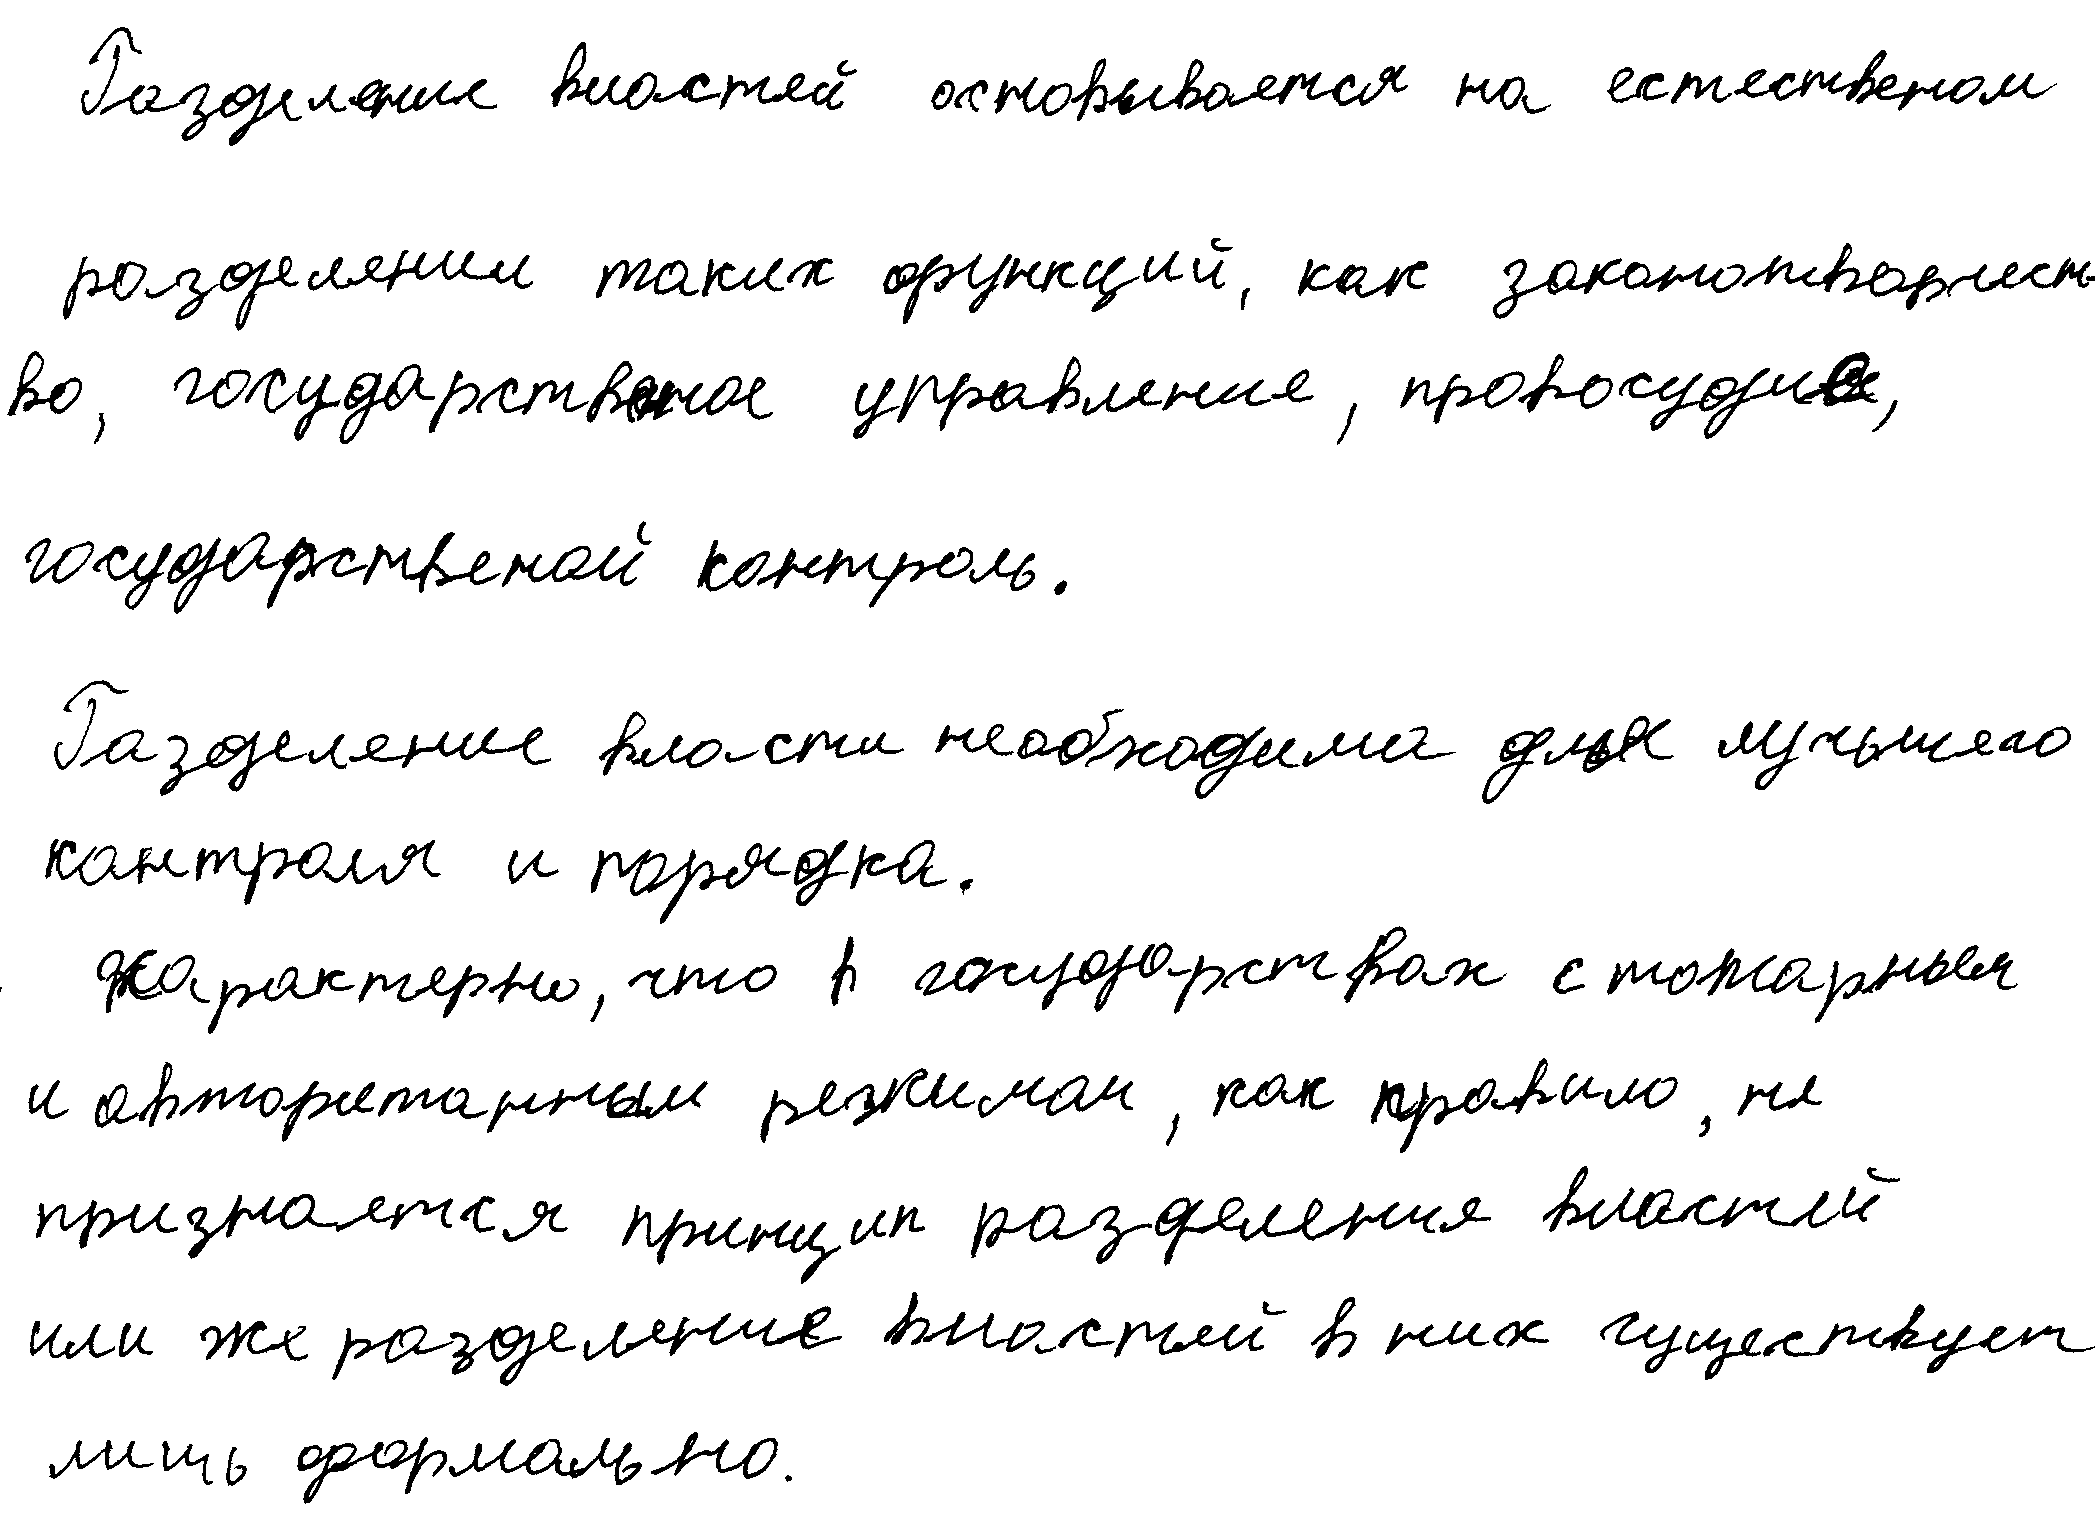 Разделение властей основывается на естественом
разделении таких функций, как законотворчест-
во, государственое управление, правосудие,
государственой контроль.
Разделение власти необходима для лучьшего
контроля и порядка.
Характерно, что в государствах с тотарным
и авторитарным режимам, как правило, не
признается принцип разделения властей
или же разделение властей в них существует
лишь формально.